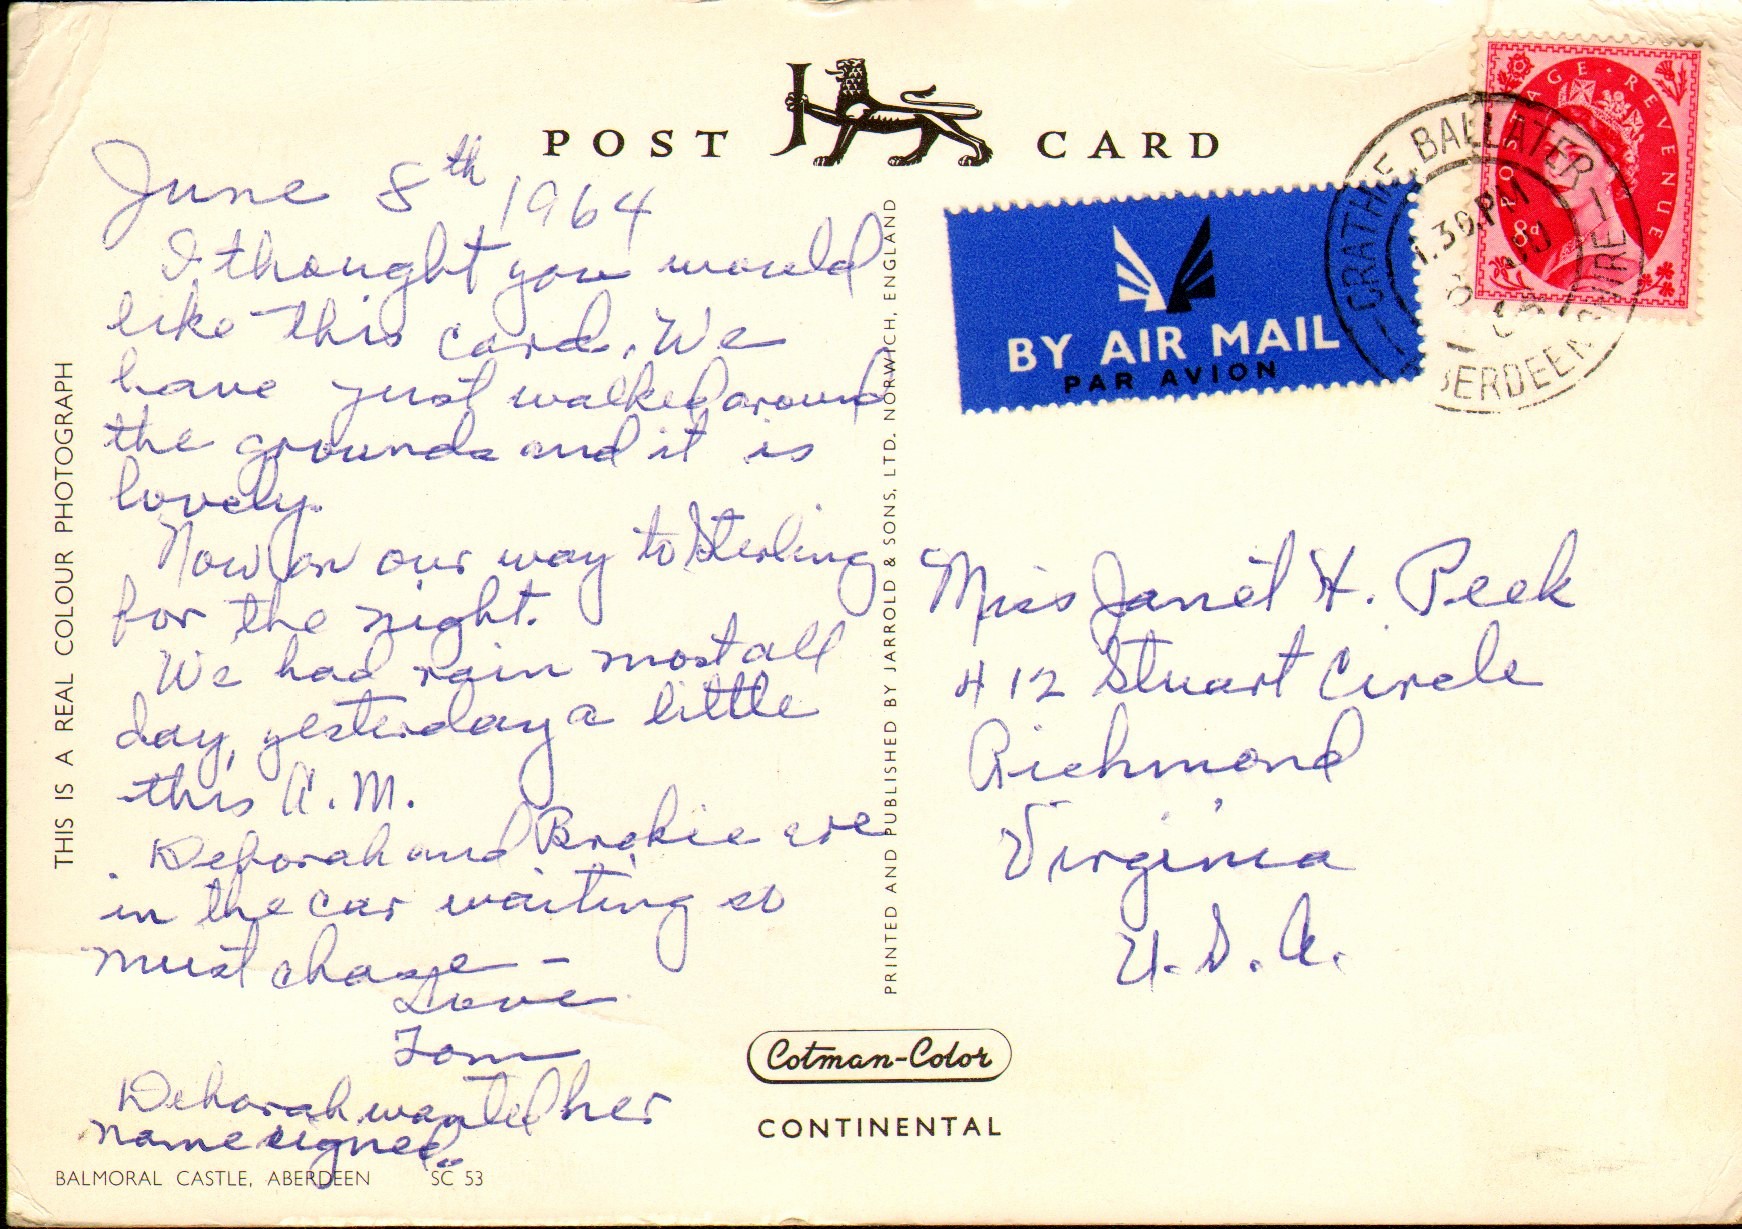 POST CARD
June 8th 1964
I thought you would
like this card. We
have just walked around
the grounds and it is
lovely.
Now on our way to Sterling
for the night.
We had rain most all
day, yesterday a little
this A.M.
Deborah and Brokie are
in the car waiting so
must chase –
Love
Tom
Deborah wanted her
name signed.
THIS IS A REAL COLOUR PHOTOGRAPH
BALMORAL CASTLE, ABERDEEN SC 53
PRINTED AND PUBLISHED BY JARROLD & SONS, LTD. NORWICH, ENGLAND
Cotman-Color
CONTINENTAL
BY AIR MAIL
PAR AVION
POSTAGE · REVENUE
8d
CRATHIE BALLATER
1.30 PM
ABERDEENSHIRE
Miss Janet H. Peek
412 Stuart Circle
Richmond
Virginia
U.S.A.